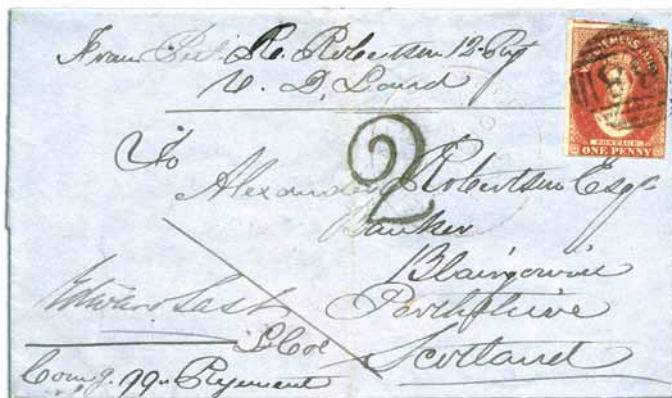 From Pvt. Ro. Robertson 12 Regt
V. D. Land
VAN DIEMENS LAND
POSTAGE
ONE PENNY
2
To
Alexander Robertson Esqr
Banker
Blairgowrie
Perthshire
Scotland
Edward Last
Lt Col
Comg. 99th Regiment